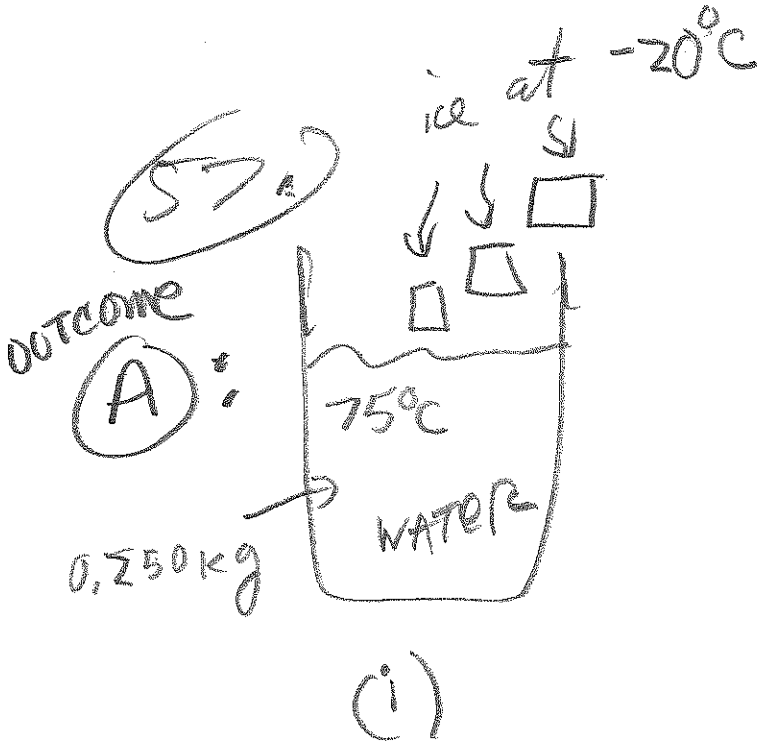 ice at -20°C
57.
OUTCOME
A :
75°C
WATER
0.250kg
(i)